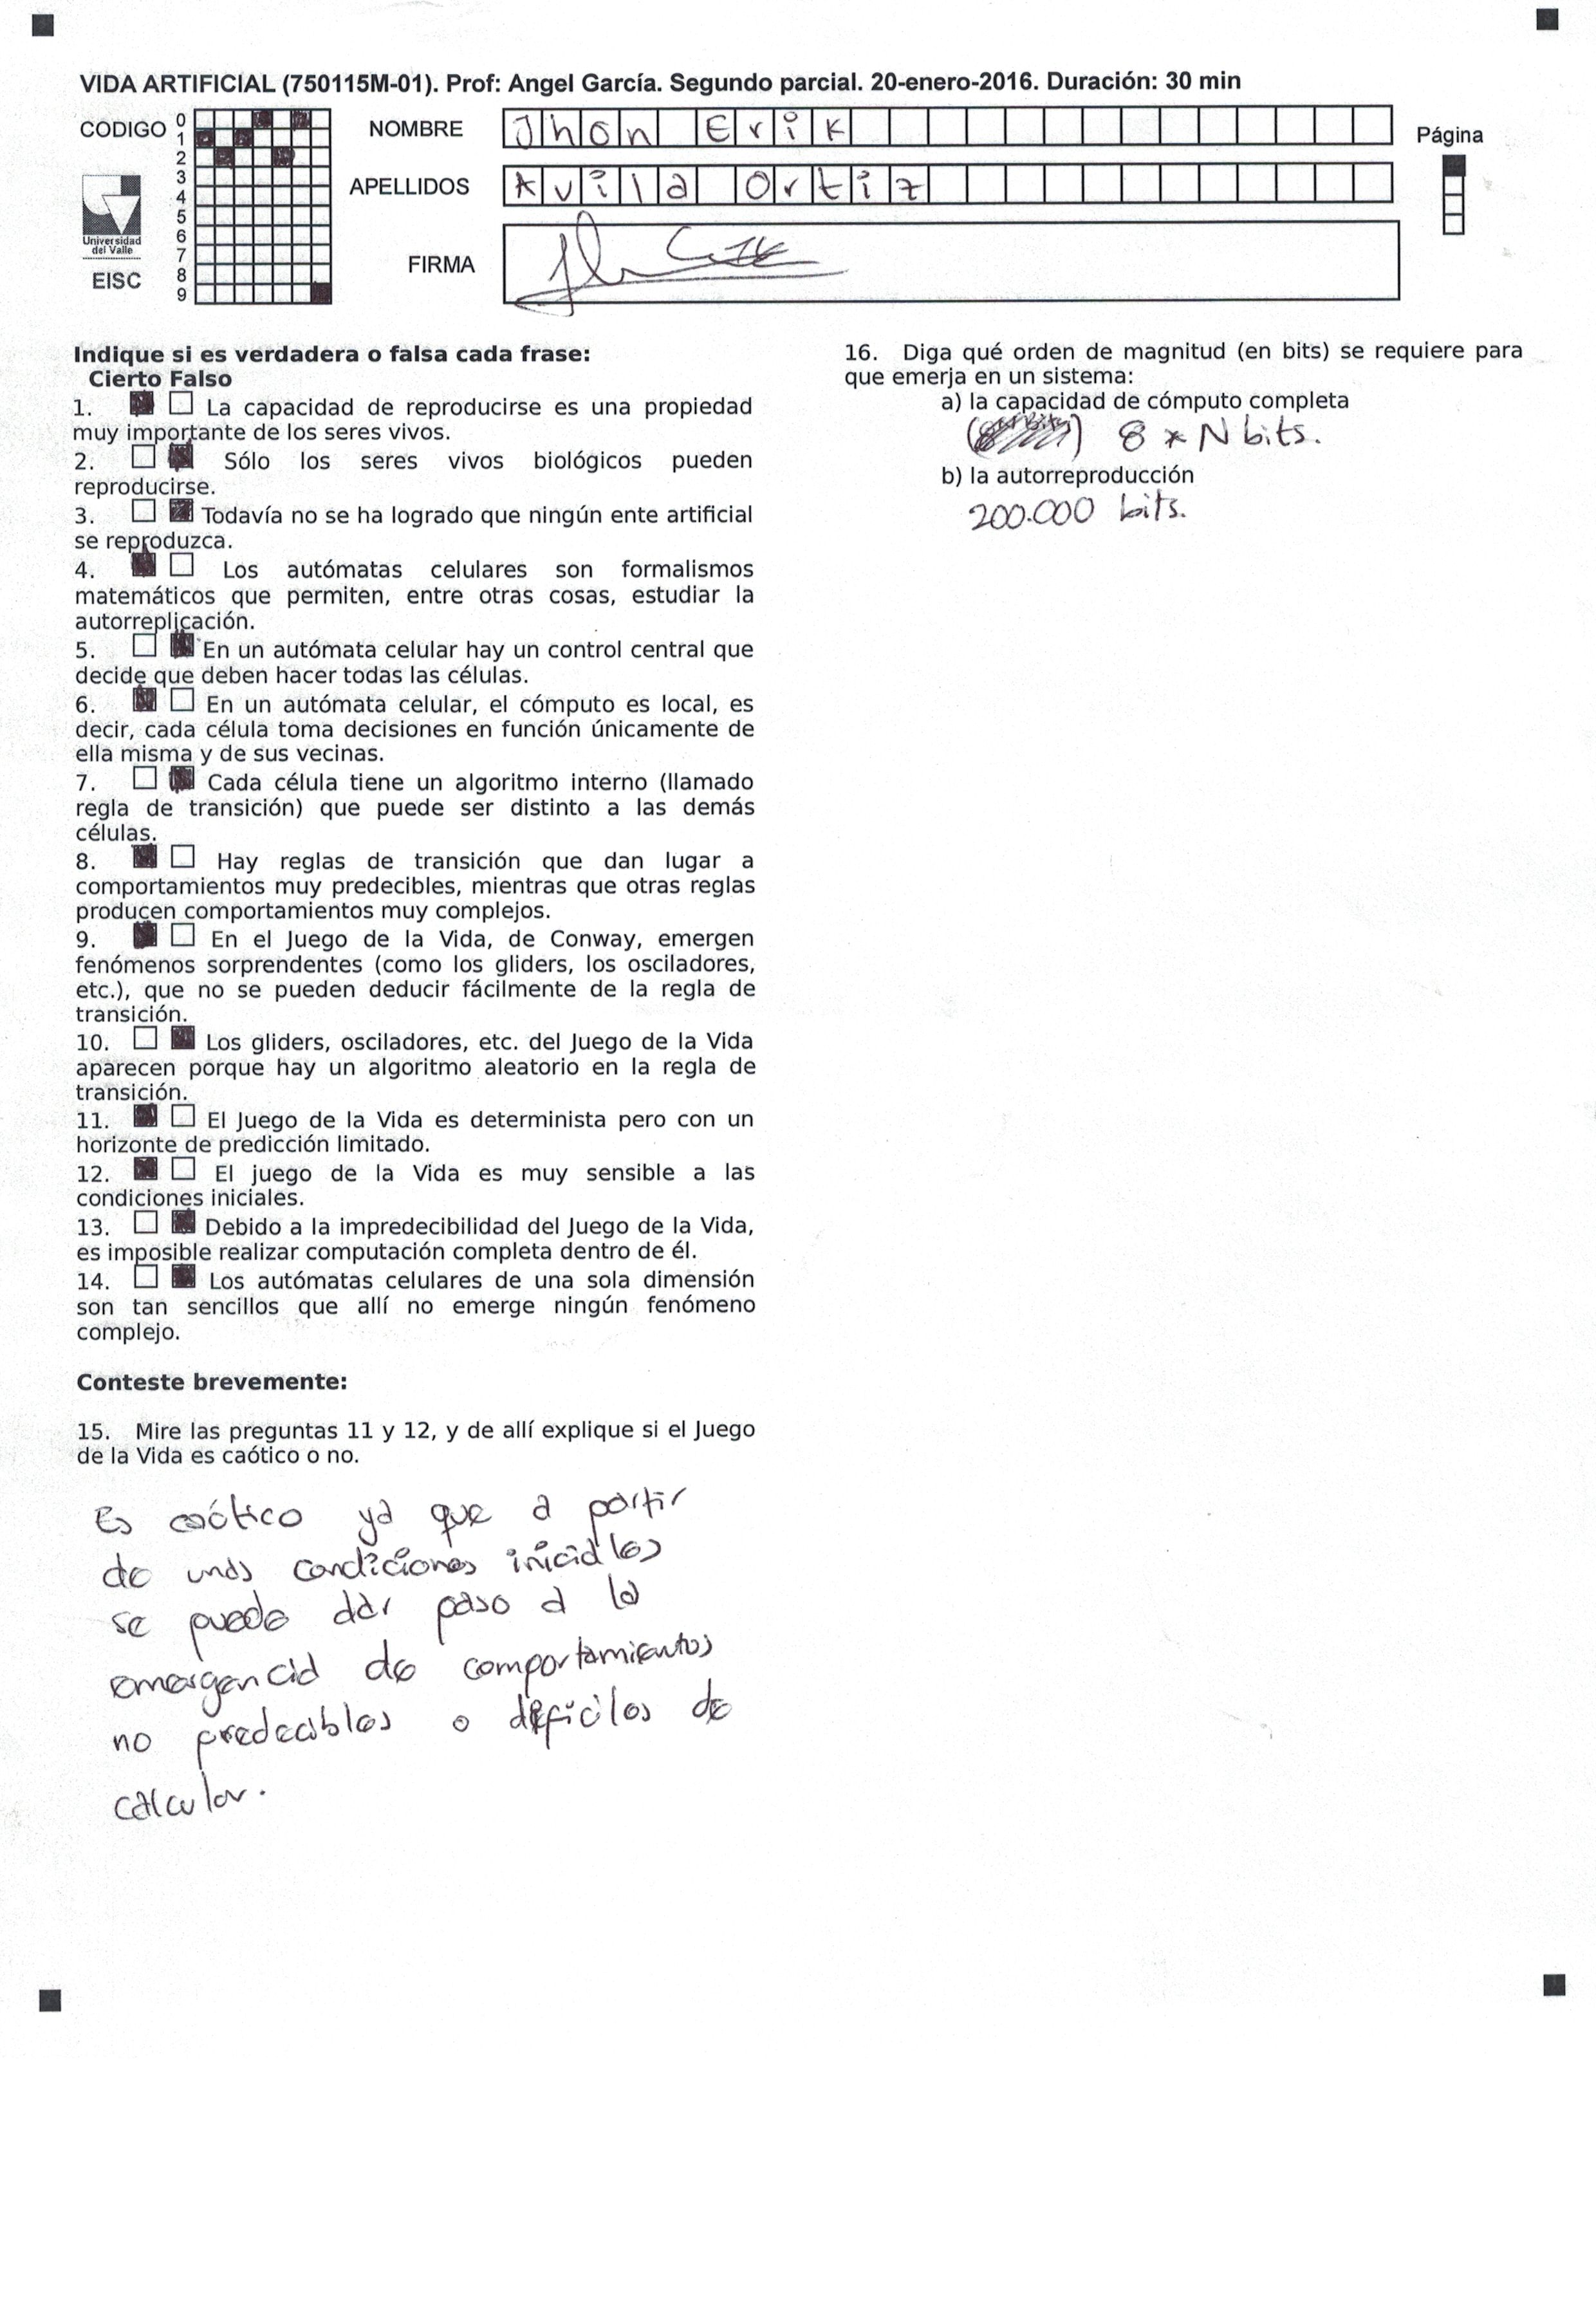 VIDA ARTIFICIAL (750115M-01). Prof: Angel García. Segundo parcial. 20-enero-2016. Duración: 30 min
CODIGO
0
1
2
3
4
5
6
7
8
9
Universidad
del Valle
EISC
NOMBRE Jhon Erik
APELLIDOS Avila Ortiz
FIRMA
Página
Indique si es verdadera o falsa cada frase:
Cierto Falso
1. La capacidad de reproducirse es una propiedad
muy importante de los seres vivos.
2. Sólo los seres vivos biológicos pueden
reproducirse.
3. Todavía no se ha logrado que ningún ente artificial
se reproduzca.
4. Los autómatas celulares son formalismos
matemáticos que permiten, entre otras cosas, estudiar la
autorreplicación.
5. En un autómata celular hay un control central que
decide que deben hacer todas las células.
6. En un autómata celular, el cómputo es local, es
decir, cada célula toma decisiones en función únicamente de
ella misma y de sus vecinas.
7. Cada célula tiene un algoritmo interno (llamado
regla de transición) que puede ser distinto a las demás
células.
8. Hay reglas de transición que dan lugar a
comportamientos muy predecibles, mientras que otras reglas
producen comportamientos muy complejos.
9. En el Juego de la Vida, de Conway, emergen
fenómenos sorprendentes (como los gliders, los osciladores,
etc.), que no se pueden deducir fácilmente de la regla de
transición.
10. Los gliders, osciladores, etc. del Juego de la Vida
aparecen porque hay un algoritmo aleatorio en la regla de
transición.
11. El Juego de la Vida es determinista pero con un
horizonte de predicción limitado.
12. El juego de la Vida es muy sensible a las
condiciones iniciales.
13. Debido a la impredecibilidad del Juego de la Vida,
es imposible realizar computación completa dentro de él.
14. Los autómatas celulares de una sola dimensión
son tan sencillos que allí no emerge ningún fenómeno
complejo.
Conteste brevemente:
15. Mire las preguntas 11 y 12, y de allí explique si el Juego
de la Vida es caótico o no.
Es caótico ya que a partir
de unas condiciones iniciales
se puede dar paso a la
emergencia de comportamientos
no predecibles o dificiles de
calcular.
16. Diga qué orden de magnitud (en bits) se requiere para
que emerja en un sistema:
a) la capacidad de cómputo completa
8 * N bits.
b) la autorreproducción
200.000 bits.